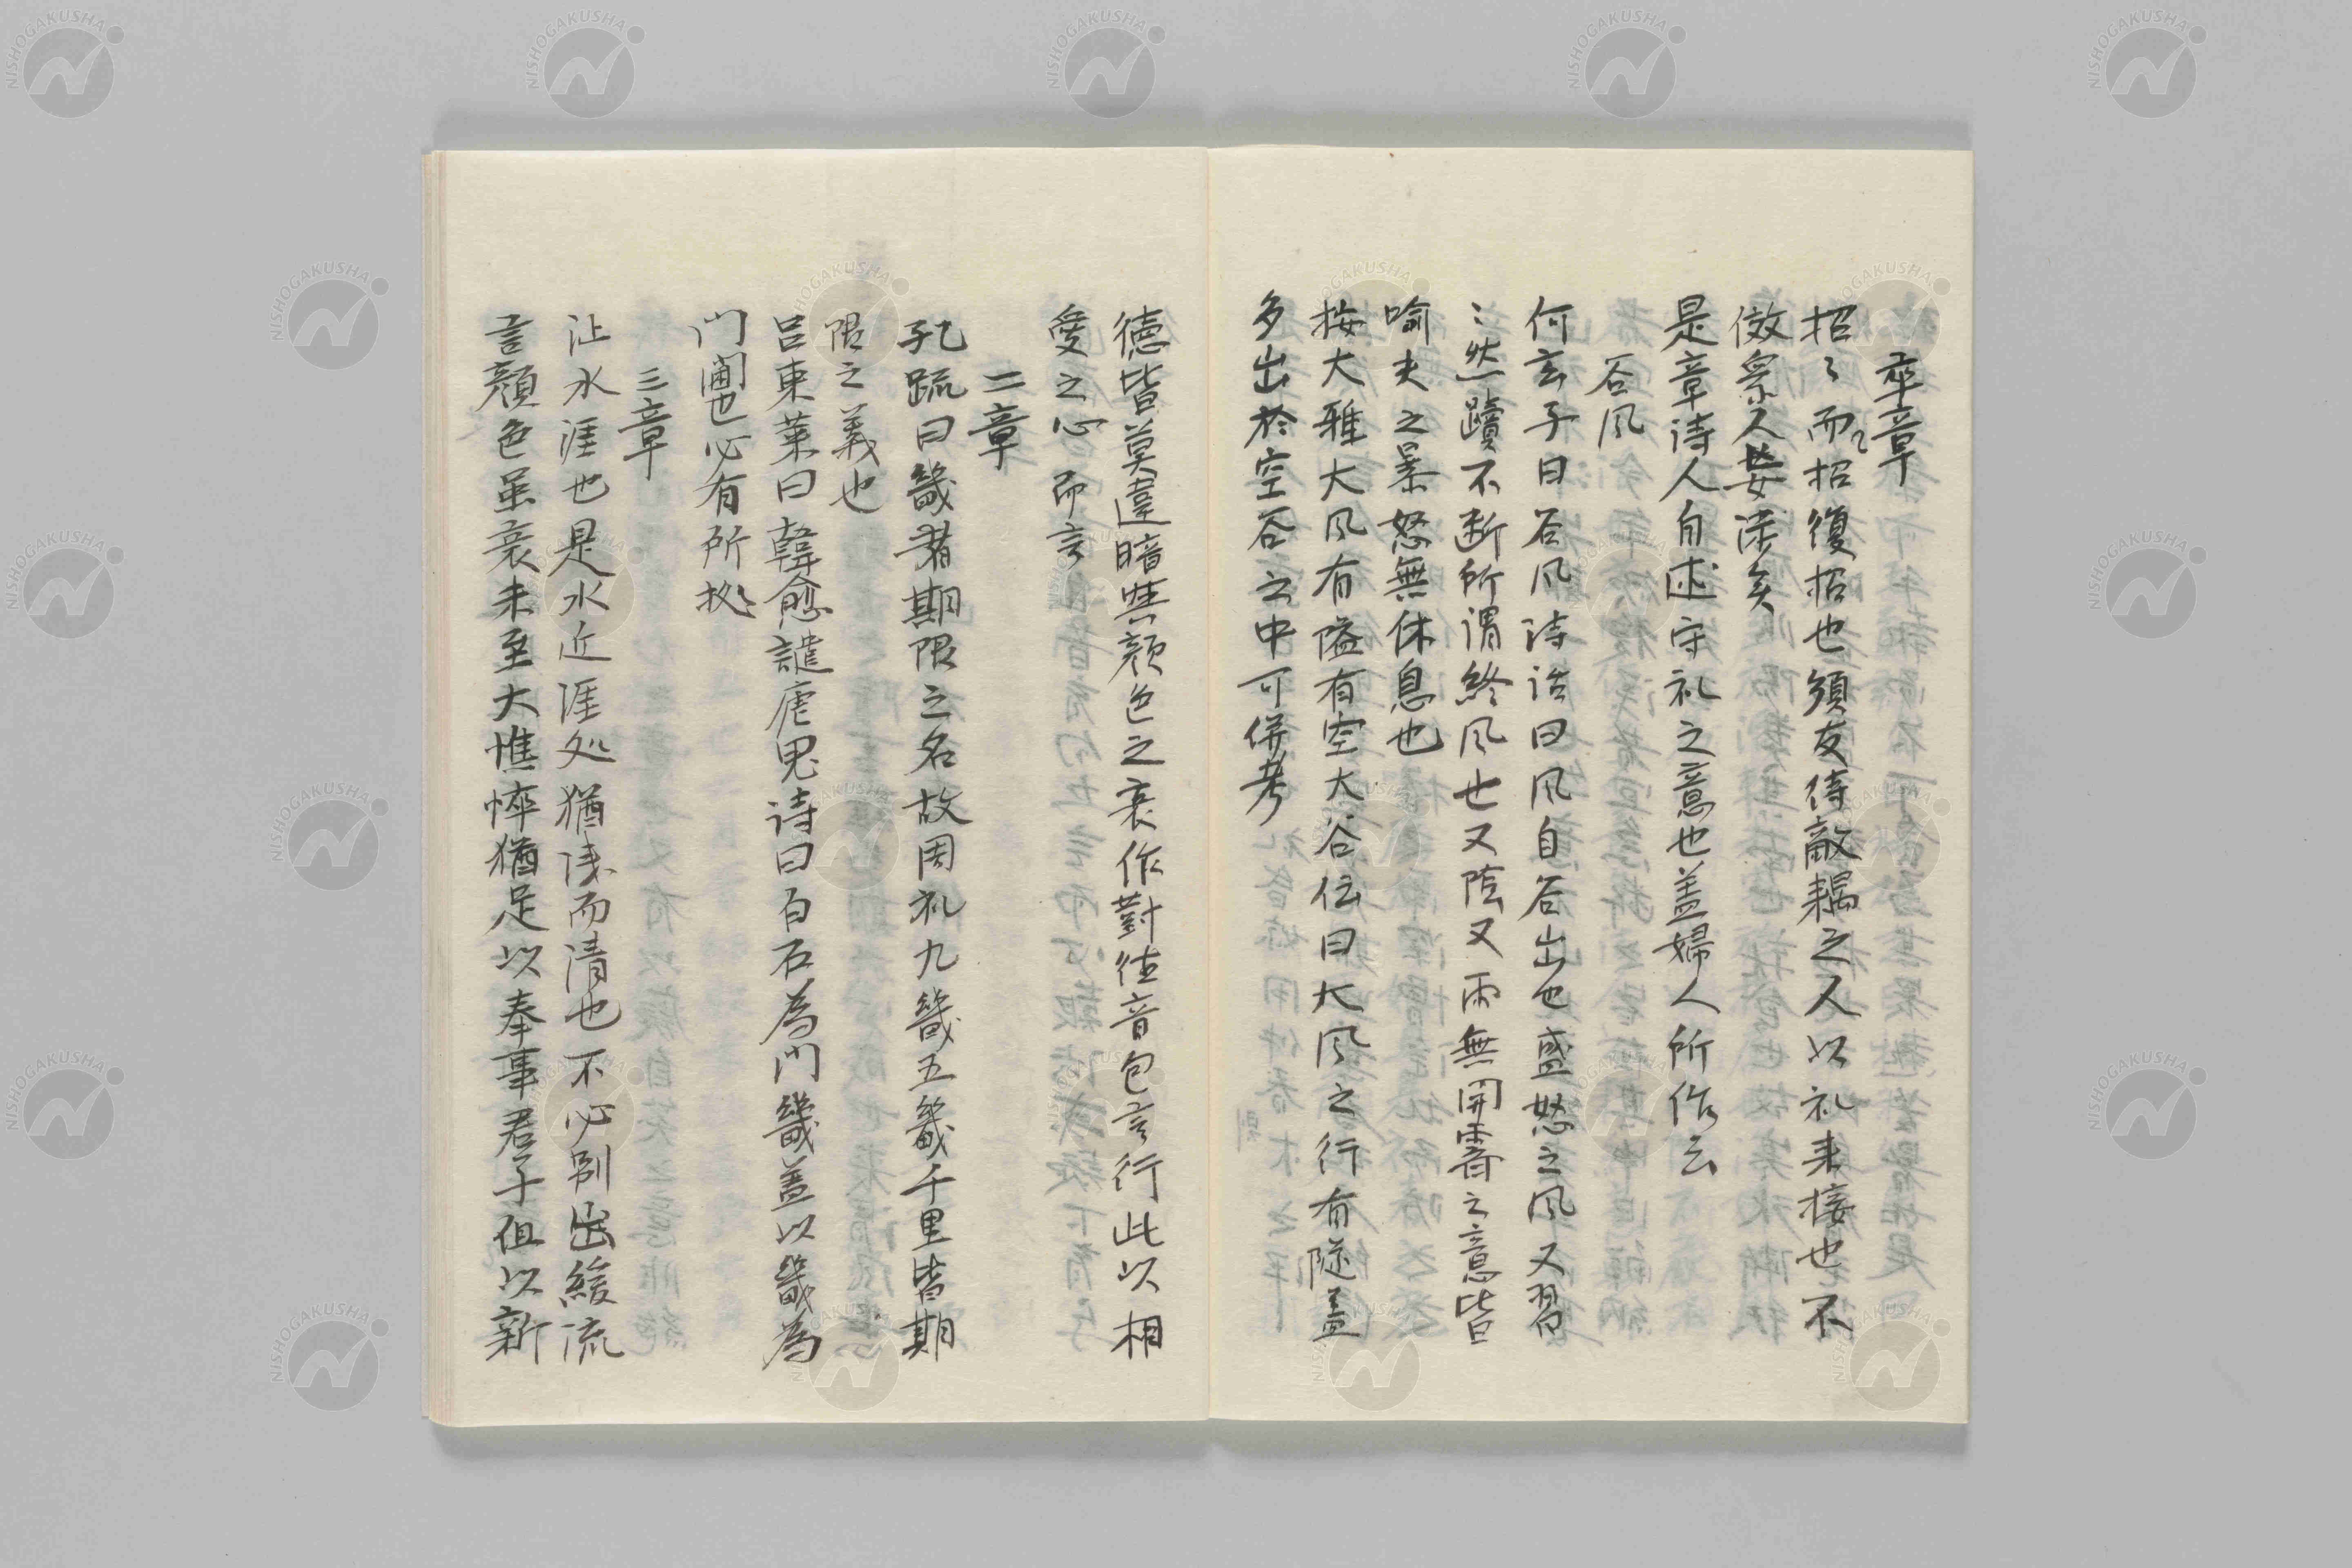 卒章
招〻而〻招復招也須友待敵耦之人以礼来接也不
傚衆人妄深矣
是章诗人自述守礼之意也盖婦人所作云
谷风
何玄子曰谷风诗诂曰风自谷出也盛怒之风又習
〻然蹟不断所谓終风也又陰又雨無開霽之意皆
喻夫之暴怒無休息也
按大雅大风有隧有空大谷伝曰大风之行有隧盖
多出於空谷之中可併考
德皆莫違暗與顔色之衰作對徳音包言行此以相
愛之心而言
二章
孔疏曰畿者期限之名故周礼九畿五畿千里皆期
限之義也
吕東莱曰韓愈譴瘧鬼诗曰白石為门畿盖以畿為
门閫也必有所拠
三章
沚水涯也是水近涯処猶浅而清也不必别出緩流
言顔色虽衰未至大憔悴猶足以奉事君子但以新